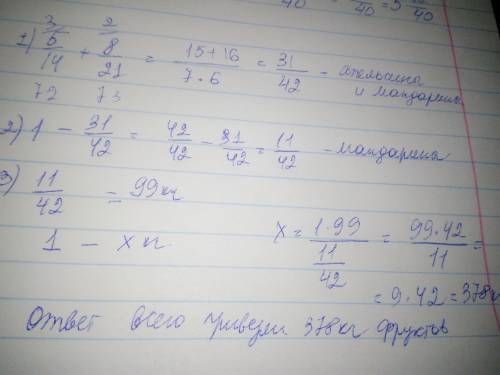 40 40 = 5 40
3 2
1) 5/14 + 8/21 = 15+16/7·6 = 31/42 - апельсина
и мандарины
72 73
2) 1 - 31/42 = 42/42 - 31/42 = 11/42 - мандарина
3) 11/42 = 99 кг
1 - x кг
x = 1·99/(11/42) = 99·42/11 =
= 9·42 = 378к
Ответ всего привезли 378кг фруктов